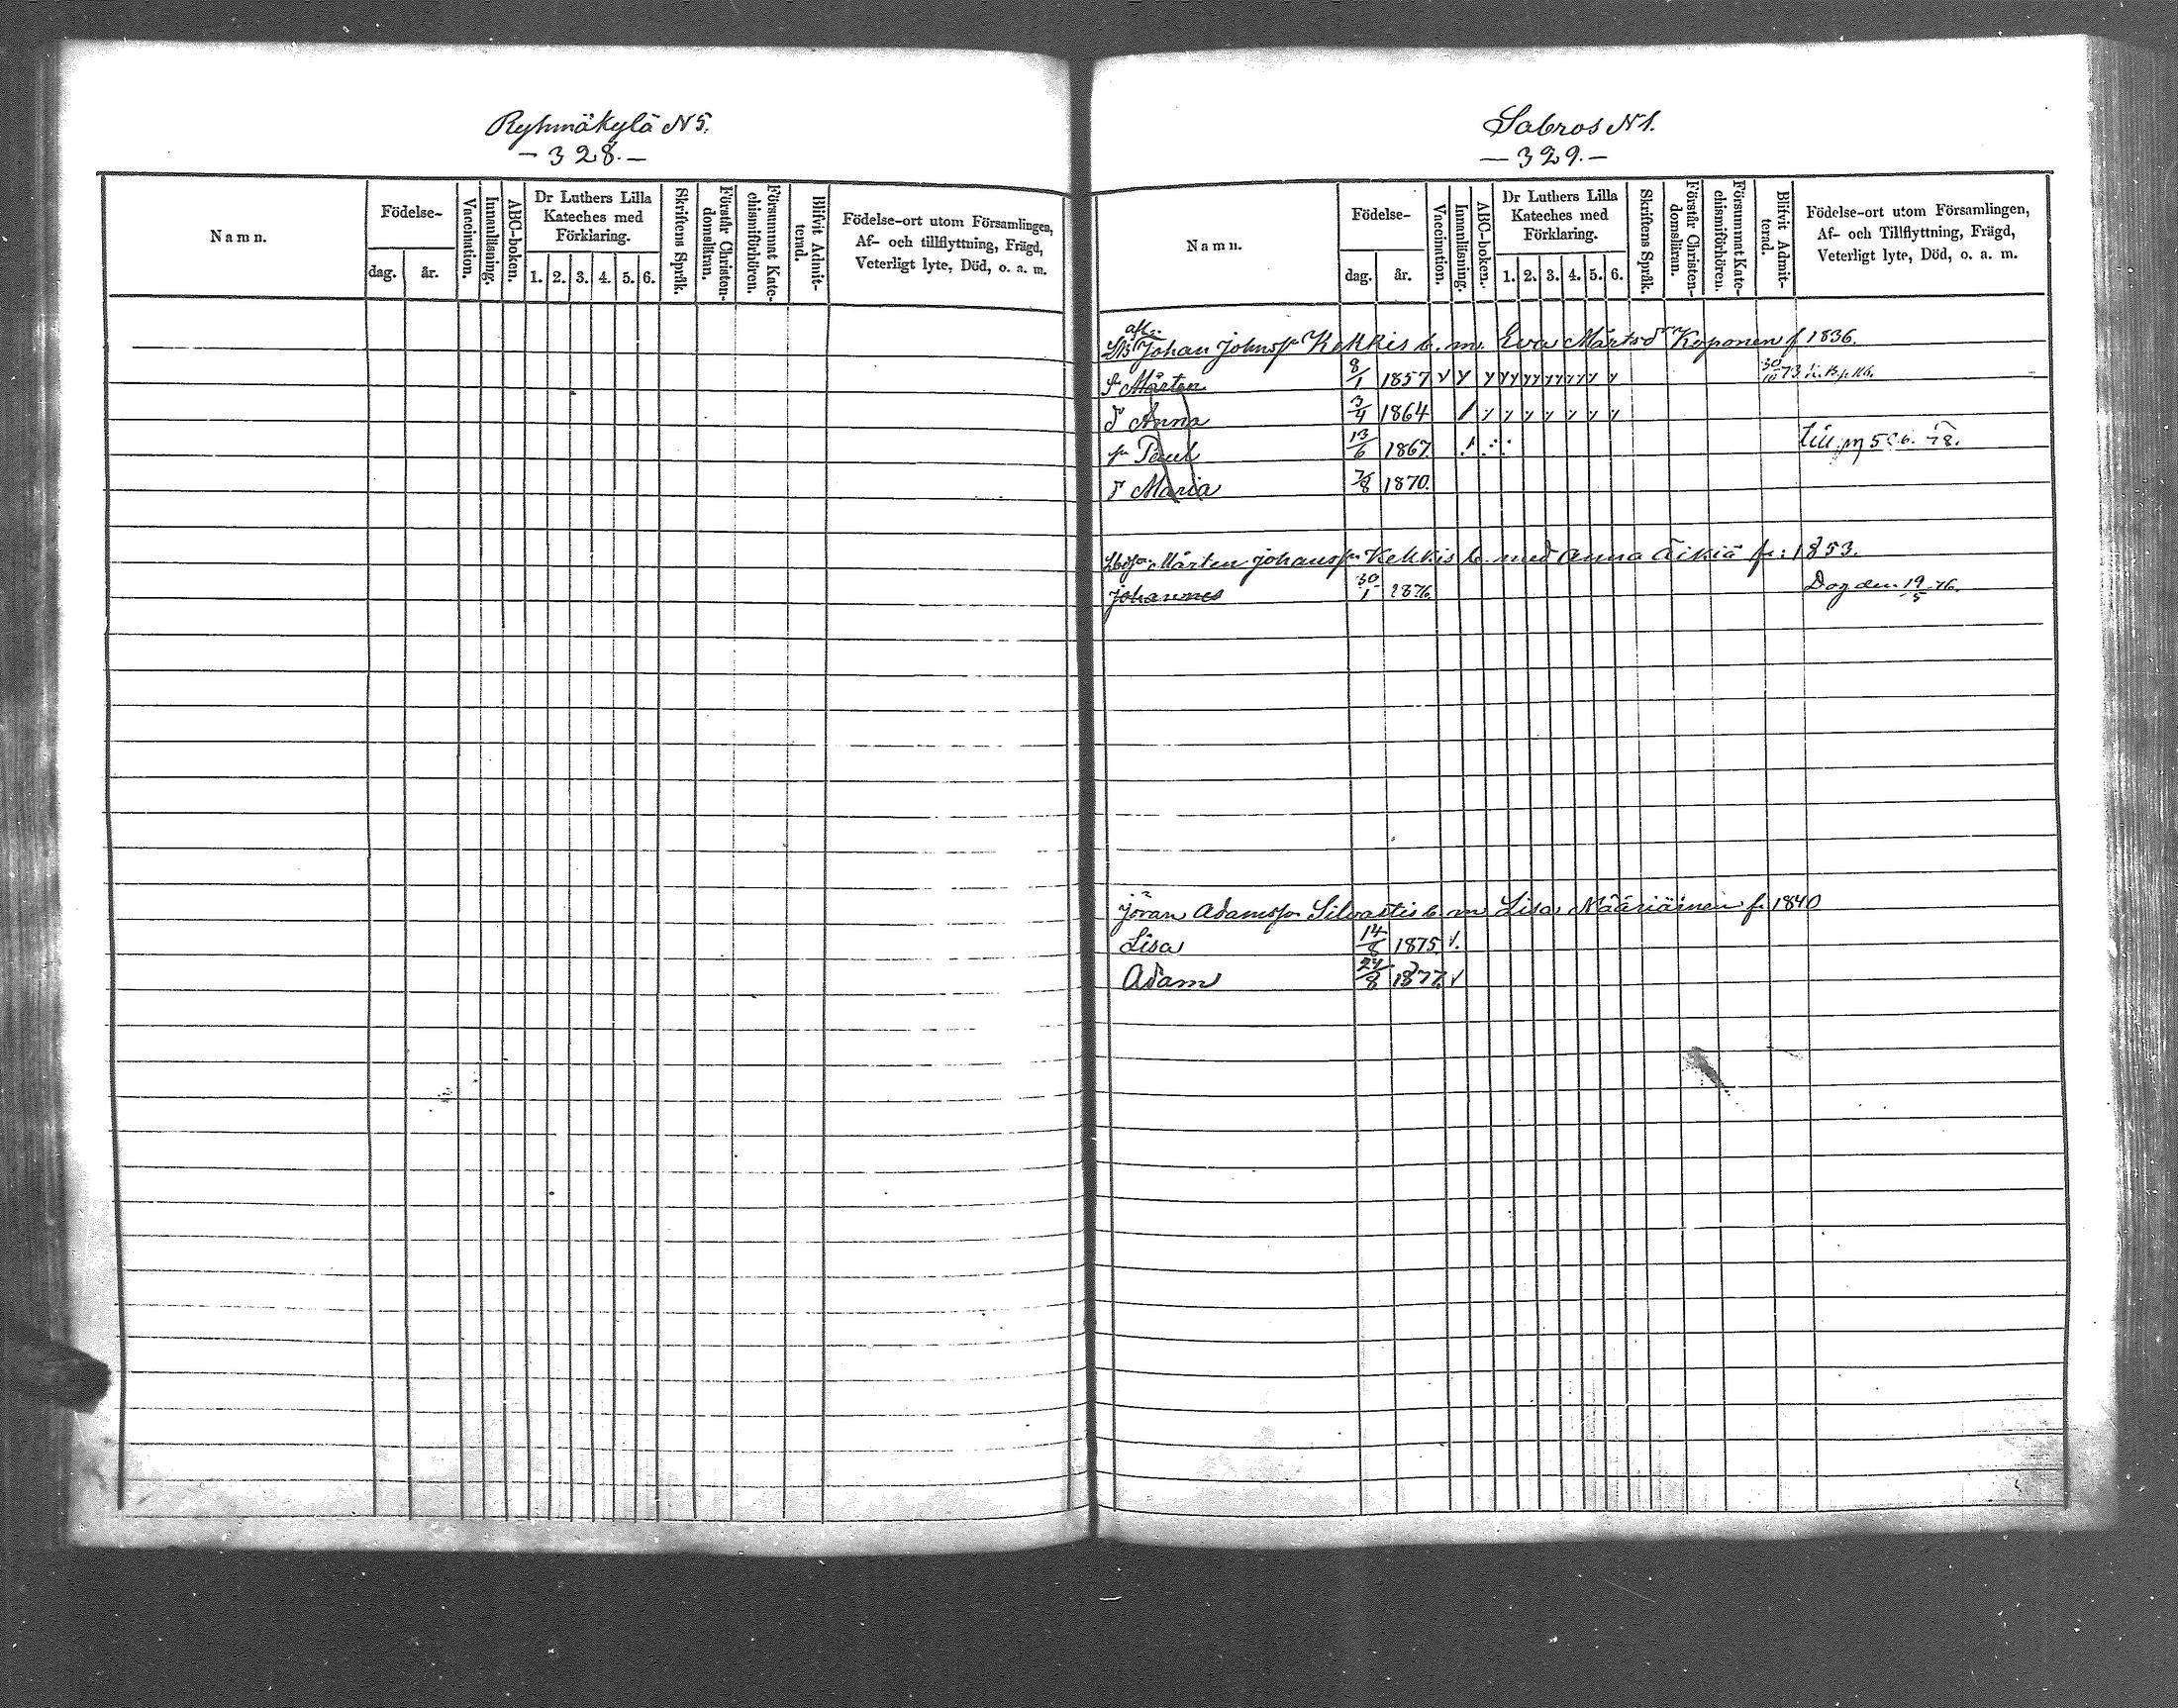 Ryhmäkylä N 5.
— 328. —
Namn.
Födelse-
dag.
år.
Vaccination.
Innanläsning.
ABC-boken.
Dr Luthers Lilla
Kateches med
Förklaring.
1. 2. 3. 4. 5. 6.
Skriftens Språk.
Förstår Christen-
domsläran.
Försummat Kate-
chismiförhören.
Blifvit Admit-
terad.
Födelse-ort utom Församlingen,
Af- och tillflyttning, Frägd,
Veterligt lyte, Död, o. a. m.
Sabros N 1.
— 329. —
Namn.
Födelse-
dag.
år.
Vaccination.
Innanläsning.
ABC-boken.
Dr Luthers Lilla
Kateches med
Förklaring.
1. 2. 3. 4. 5. 6.
Skriftens Språk.
Förstår Christen-
domsläran.
Försummat Kate-
chismiförhören.
Blifvit Admit-
terad.
Födelse-ort utom Församlingen,
Af- och Tillflyttning, Frägd,
Veterligt lyte, Död, o. a. m.
afl.
Johan Johnsson Kekkis b. m. Eva Mårtsdr Koponen f 1836.
Mårten 8/1 1857 30/10 73
d Anna 3/4 1864
Paul 13/6 1867. till
d Maria 7/8 1870.
Mårten Johansson Kekkis b. med Anna Äikiä f: 1853.
Johannes 30/1 1876. Dog den 19/5 76.
Jöran Adamsson Silvastis b. m Lisa Määriäinen f. 1840
Lisa 14/8 1875.
Adam 24/8 1877.